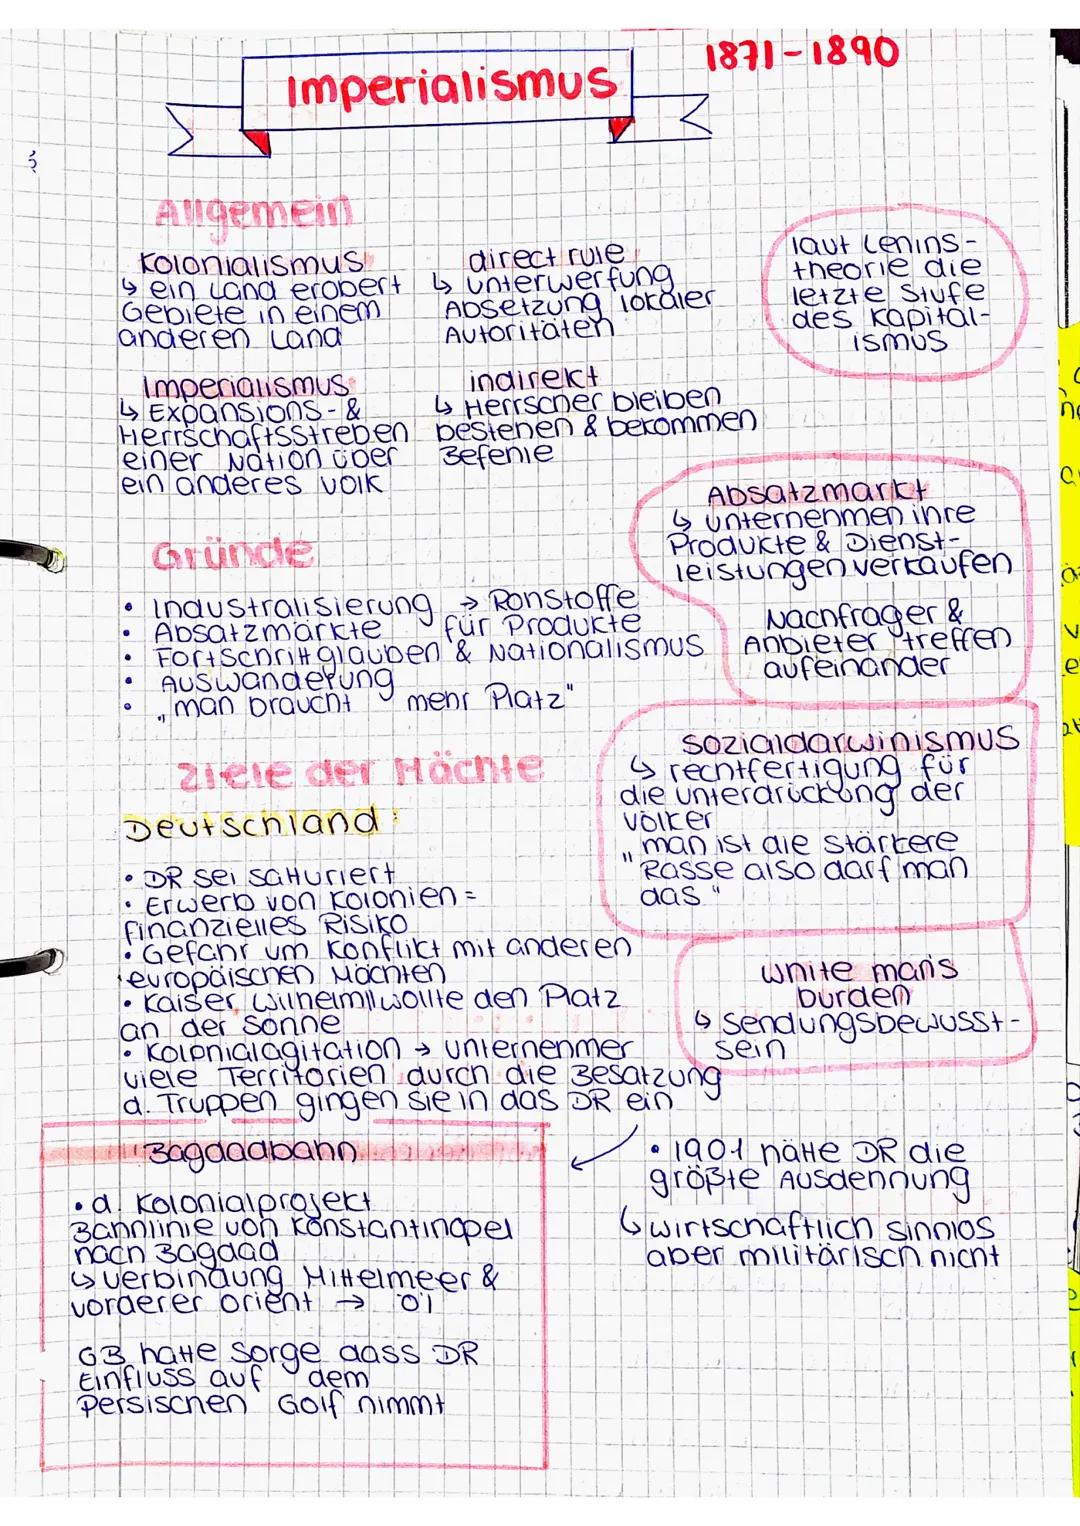 Imperialismus
1871-1890
Allgemein
Kolonialismus
↳ ein Land erobert
Gebiete in einem
anderen Land
direct rule
↳ unterwerfung
Absetzung lokaler
Autoritäten
laut Lenins-
theorie die
letzte Stufe
des Kapital-
ismus
Imperialismus
↳ Expansions- &
Herrschaftsstreben
einer Nation über
ein anderes Volk
indirekt
↳ Herrscher bleiben
bestehen & bekommen
Befehle
Absatzmarkt
↳ unternehmen ihre
Produkte & Dienst-
leistungen verkaufen
Nachfrager &
Anbieter treffen
aufeinander
Gründe
• Industralisierung → Rohstoffe
• Absatzmärkte für Produkte
• Fortschrittglauben & Nationalismus
• Auswanderung
• „man braucht mehr Platz"
Sozialdarwinismus
↳ rechtfertigung für
die unterdrückung der
völker
„man ist die stärkere
Rasse also darf man
das"
Ziele der Mächte
Deutschland:
• DR sei satturiert
• Erwerb von Kolonien =
finanzielles Risiko
• Gefahr um Konflikt mit anderen
europäischen Mächten
• Kaiser Wilhelm II wollte den Platz
an der Sonne
• Kolonialagitation → unternehmer
viele Territorien durch die Besatzung
d. Truppen gingen sie in das DR ein
white man's
burden
↳ Sendungsbewusst-
sein
Bagdadbahn
• d. Kolonialprojekt
Bahnlinie von Konstantinopel
nach Bagdad
↳ verbindung Mittelmeer &
vorderer orient → öl
GB hatte Sorge dass DR
Einfluss auf dem
Persischen Golf nimmt
• 1901 hätte DR die
größte Ausdehnung
↳ wirtschaftlich sinnlos
aber militärisch nicht